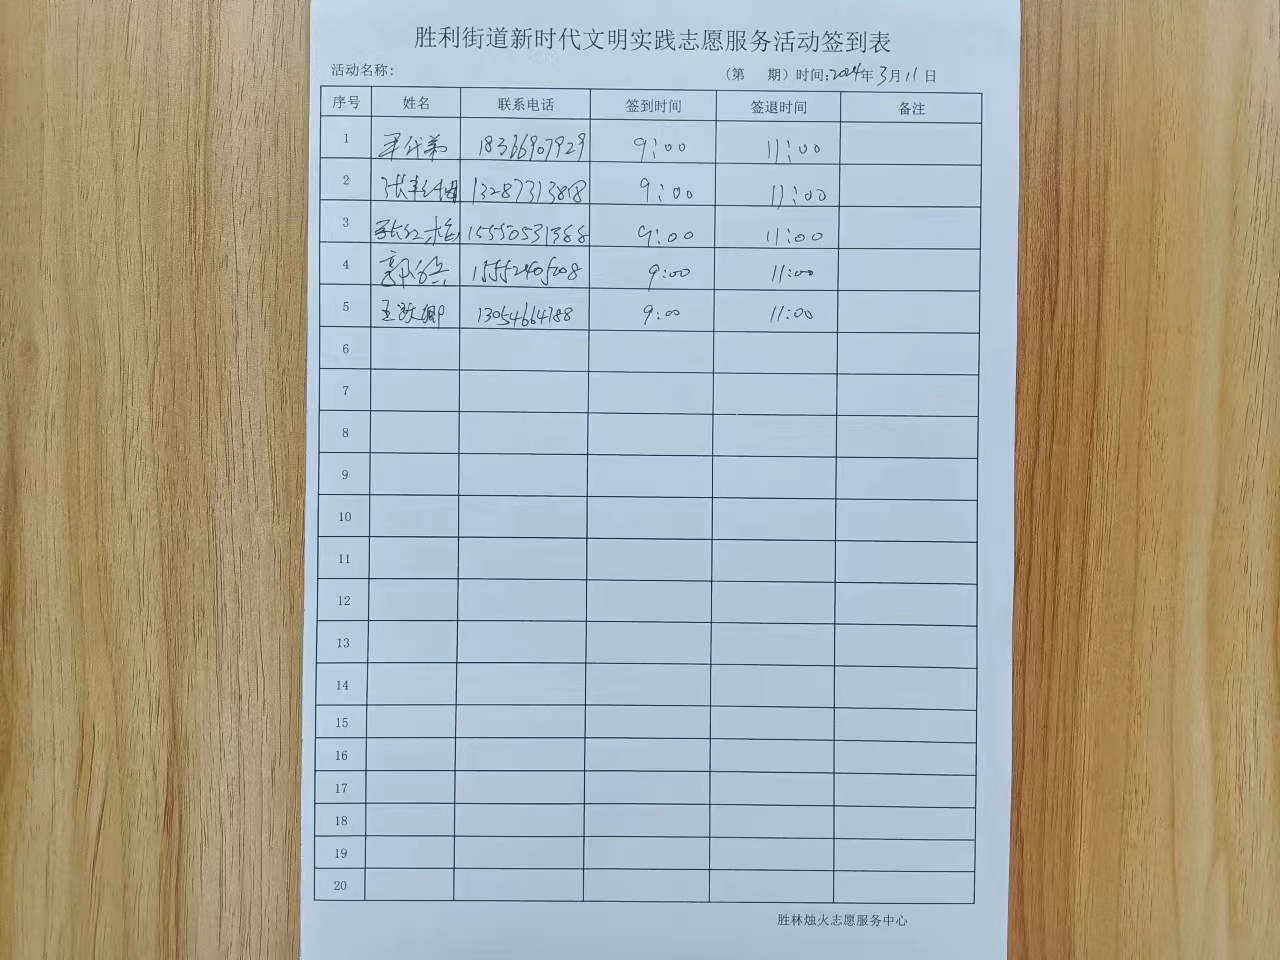 胜利街道新时代文明实践志愿服务活动签到表
活动名称: （第 期）时间:2024年3月11日
序号 姓名 联系电话 签到时间 签退时间 备注
1 18366907929 9:00 11:00
2 13287313818 9:00 11:00
3 张红梅 15550531388 9:00 11:00
4 15552405008 9:00 11:00
5 王跃卿 13054664788 9:00 11:00
6
7
8
9
10
11
12
13
14
15
16
17
18
19
20
胜林烛火志愿服务中心